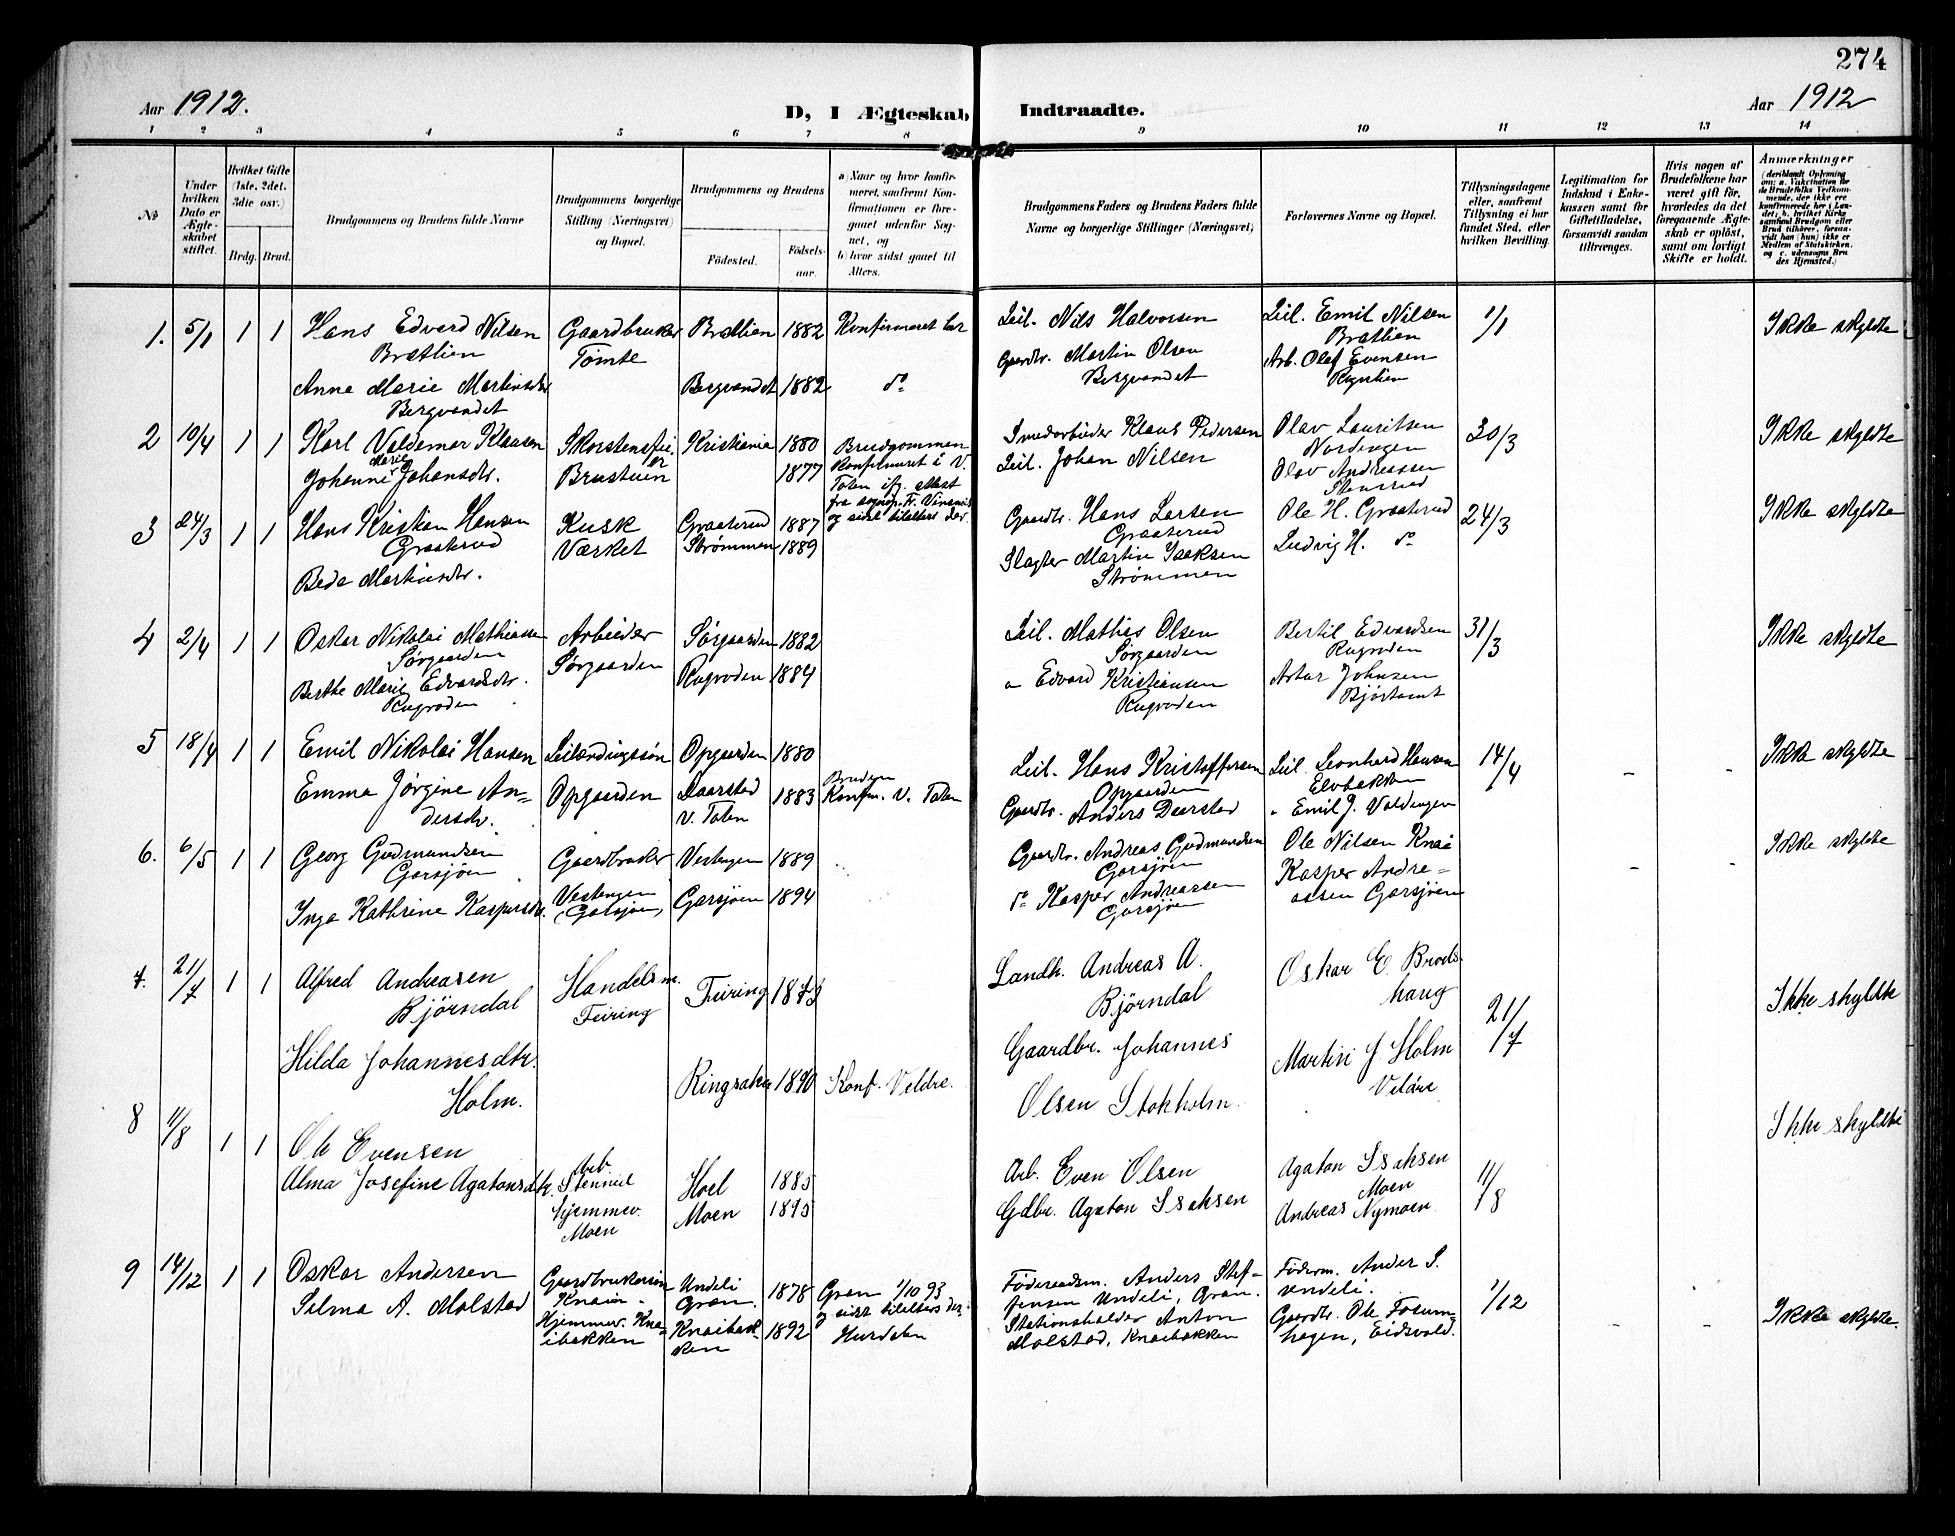 274
Aar 1912.
D, I Ægteskab Indtraadte.
Aar 1912
1 2 3 4 5 6 7 8 9 10 11 12 13 14
No
Under hvilken Dato er Ægteskabet stiftet.
Hvilket Gifte (1ste, 2det, 3die osv.)
Brdg. Brud.
Brudgommens og Brudens fulde Navne
Brudgommens borgerlige Stilling (Næringsvei) og Bopæl.
Brudgommens og Brudens
Fødested.
Fødsels-aar.
a) Naar og hvor konfirmeret, saafremt Konfirmationen er foregaaet udenfor Sognet, og
b) hvor sidst gaaet til Alters.
Brudgommens Faders og Brudens Faders fulde Navne og borgerlige Stillinger (Næringsvei)
Forlovernes Navne og Bopæl.
Tillysningsdagene eller, saafremt Tillysning ei har fundet Sted, efter hvilken Bevilling.
Legitimation for Indskud i Enkekassen samt for Giftetilladelse, forsaavidt saadan tiltrænges.
Hvis nogen af Brudefolkene har været gift før, hvorledes da det foregaaende Ægteskab er opløst, samt om lovligt Skifte er holdt.
Anmærkninger
1. 5/1 1 1 Hans Edvard Nilsen Gaardbruker Brætlien 1882 Konfirmeret her Leil. Nils Halvorsen Leil. Emil Nilsen 1/1 Ikke skyldte
Brætlien Tømte Gaardbr. Martin Olsen Brætlien
Anne Marie Martinsdtr. Bergvandet 1882 do Bergvandet Arb. Olaf Evensen
Bergvandet
2 10/4 1 1 Karl Valdemar Klausen Skorstensfeier Kristiania 1880 Brudgommen Smedarbeider Klaus Pedersen Olav Lauritsen 30/3 Ikke skyldte
Marie
Johanne Johansdtr. Brustuen 1877 konfirmeret i V. Leil. Johan Nilsen Nordengen
Toten Olav Andreassen
og sidst tilalters der. Stensrud
3 24/3 1 1 Hans Kristian Hansen Kusk Graaterud 1887 Gaardbr. Hans Larsen Ole H. Graaterud 24/3 Ikke skyldte
Graaterud Værket Strømmen 1889 Graaterud Ludvig H. do
Beda Martinsdtr. Slagter Martin Isaksen
Strømmen
4 2/4 1 1 Oskar Nikolai Mathiassen Arbeider Sørgaarden 1882 Leil. Mathis Olsen Bertil Edvardsen 31/3 Ikke skyldte
Sørgaarden Sørgaarden Sørgaarden Rugroden
Berthe Marie Edvardsdtr. Rugroden 1884 " Edvard Kristiansen Artur Johnsen
Rugroden Rugroden Bjørtomt
5 18/4 1 1 Emil Nikolai Hansen Leilændingssøn Opgaarden 1880 Leil. Hans Kristoffersen Leil. Leonhard Hansen 14/4 - - Ikke skyldte
Emma Jørgine An- Opgaarden Daarstad 1883 Bruden Konfm. V. Toten Opgaarden Elvbakken
dersdtr. V. Toten Gaardbr. Anders Daarstad " Emil J. Valdengen
6. 6/5 1 1 Georg Gudmundsen Gaardbruker Vestengen 1889 Gaardbr. Andreas Gudmundsen Ole Nilsen Knai - - Ikke skyldte
Garsjøen Vestengen Garsjøen Kasper Andre-
Inga Kathrine Kaspersdtr. (Garsjøen) Garsjøen 1894 do Kasper Andreassen assen Garsjøen
Garsjøen
7. 21/7 1 1 Alfred Andreasen Handelsm. Feiring Landh. Andreas A. Oskar E. Brods- 21/7 Ikke skyldte
Bjørndal Feiring Bjørndal haug
Hilda Johannesdtr. Ringsaker 1890 Konf. Veldre. Gaardbr. Johannes Martin J. Holm
Holm. Olsen Stokholm. Veldre
8 11/8 1 1 Ole Evensen Arb. Hoel 1885 Arb. Even Olsen Agaton Isaksen 11/8 Ikke skyldte
Alma Josefine Agatonsdtr. hjemmev. Moen Moen 1895 Gdbr. Agaton Isaksen Moen
Andreas Nymoen
9 14/12 1 1 Oskar Andersen Gaardbrukersøn Undeli 1878 Gran 1/10 93 Føderaadsm. Anders Stef- Føderm. Ander S. 1/12 - - Ikke skyldte.
Selma A. Molstad Gran. og sidst tilalters der. fensen Undeli, Gran. Undeli.
Hjemmev. Kna- Knaibak- 1892 Hurdalen Stationsholder Anton Gaardbr. Ole Fosum-
ibakken ken Molstad, Knaibakken hagen, Eidsvold.